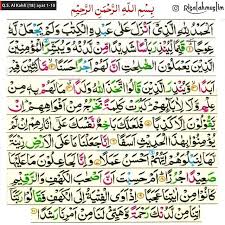 Q.S. Al Kahfi [18] ayat 1-10
Risalahmuslim
بِسْمِ اللّٰهِ الرَّحْمٰنِ الرَّحِيْمِ
اَلْحَمْدُ لِلّٰهِ الَّذِيْٓ اَنْزَلَ عَلٰى عَبْدِهِ الْكِتٰبَ وَلَمْ يَجْعَلْ لَّهٗ
عِوَجًا ۜ قَيِّمًا لِّيُنْذِرَ بَأْسًا شَدِيْدًا مِّنْ لَّدُنْهُ وَيُبَشِّرَ الْمُؤْمِنِيْنَ
الَّذِيْنَ يَعْمَلُوْنَ الصّٰلِحٰتِ اَنَّ لَهُمْ اَجْرًا حَسَنًا مَّاكِثِيْنَ فِيْهِ
اَبَدًا وَّيُنْذِرَ الَّذِيْنَ قَالُوا اتَّخَذَ اللّٰهُ وَلَدًا مَا لَهُمْ بِهٖ
مِنْ عِلْمٍ وَّلَا لِاٰبَآئِهِمْ كَبُرَتْ كَلِمَةً تَخْرُجُ مِنْ اَفْوَاهِهِمْ اِنْ
يَّقُوْلُوْنَ اِلَّا كَذِبًا فَلَعَلَّكَ بَاخِعٌ نَّفْسَكَ عَلٰٓى اٰثَارِهِمْ اِنْ
لَّمْ يُؤْمِنُوْا بِهٰذَا الْحَدِيْثِ اَسَفًا اِنَّا جَعَلْنَا مَا عَلَى الْاَرْضِ
زِيْنَةً لَّهَا لِنَبْلُوَهُمْ اَيُّهُمْ اَحْسَنُ عَمَلًا وَاِنَّا لَجَاعِلُوْنَ مَا عَلَيْهَا
صَعِيْدًا جُرُزًا اَمْ حَسِبْتَ اَنَّ اَصْحٰبَ الْكَهْفِ وَالرَّقِيْمِ
كَانُوْا مِنْ اٰيٰتِنَا عَجَبًا اِذْ اَوَى الْفِتْيَةُ اِلَى الْكَهْفِ فَقَالُوْا رَبَّنَآ
اٰتِنَا مِنْ لَّدُنْكَ رَحْمَةً وَّهَيِّئْ لَنَا مِنْ اَمْرِنَا رَشَدًا